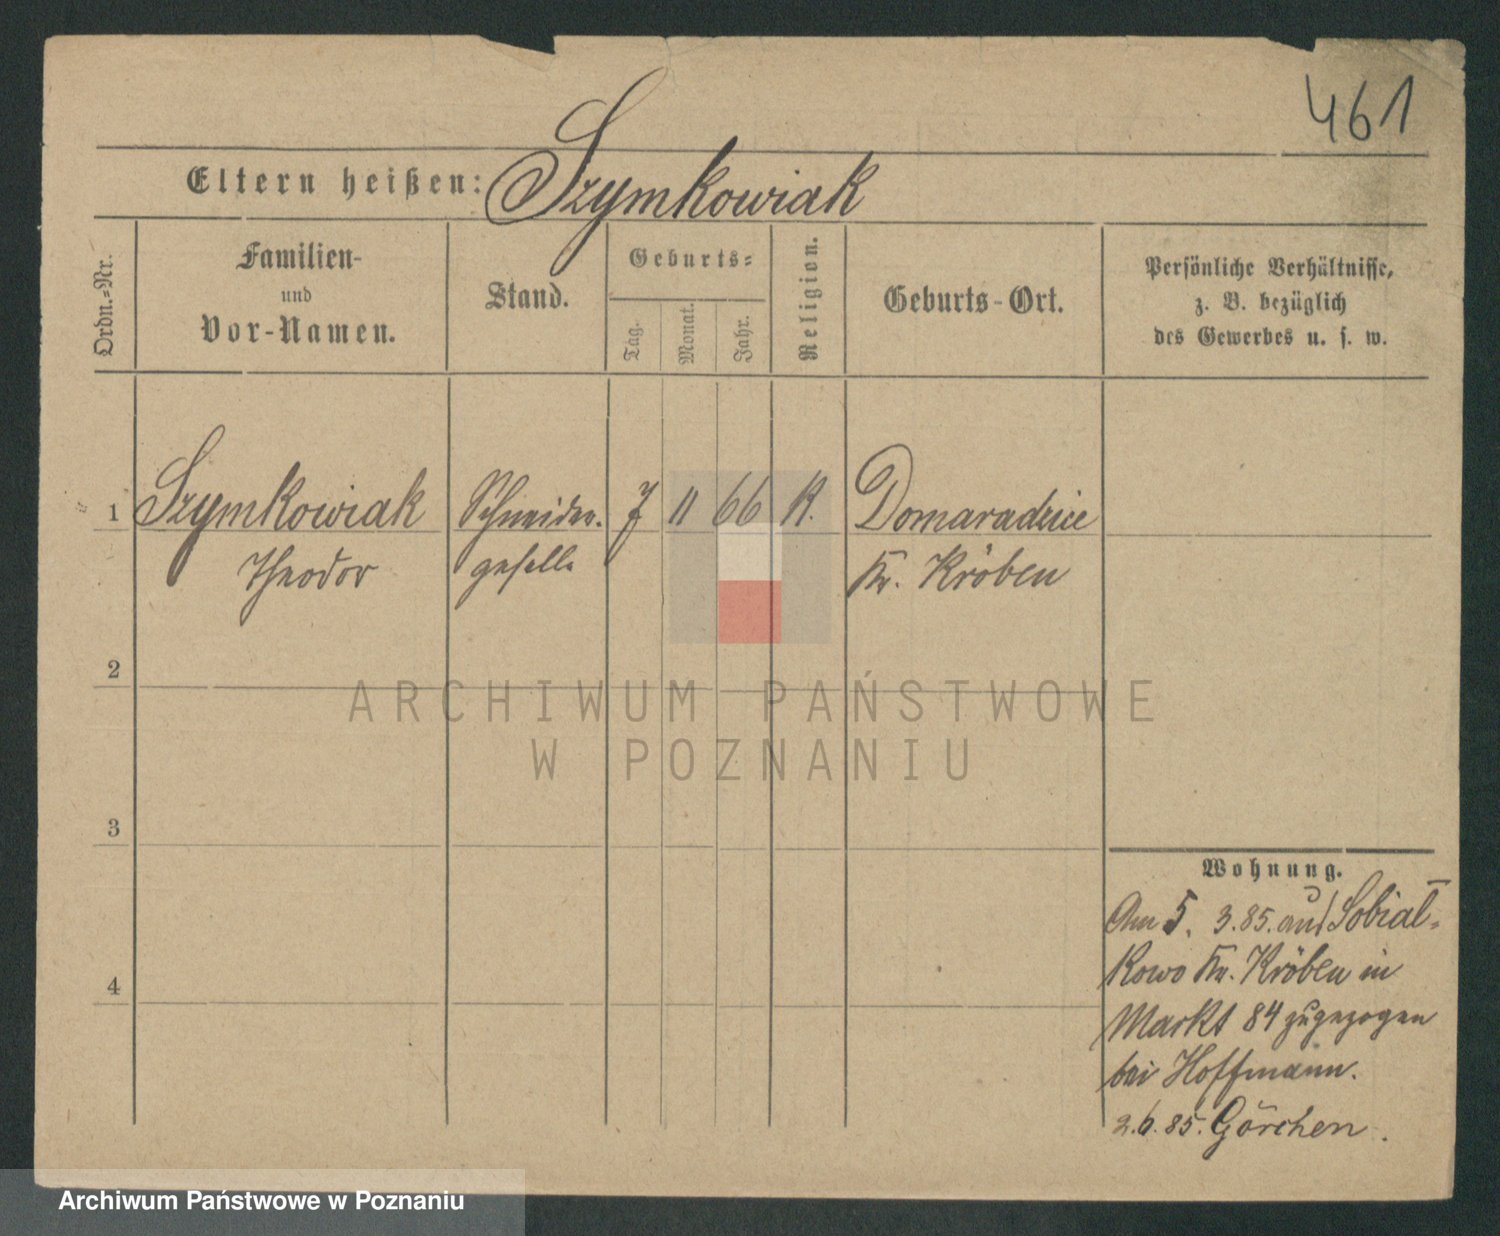 461
Eltern heißen: Szymkowiak
Ordn.=Nr.
Familien-
und
Vor-Namen.
Stand.
Geburts=
Tag.
Monat.
Jahr.
Religion.
Geburts-Ort.
Persönliche Verhältnisse,
z. B. bezüglich
des Gewerbes u. s. w.
1 Szymkowiak Schneider- 7 11 66 K. Domaradzice
Theodor geselle Kr. Kröben
2
ARCHIWUM PAŃSTWOWE
W POZNANIU
3
Wohnung.
Am 5. 3.85. aus Sobial-
kowo Kr. Kröben in
4
Markt 84 zugezogen
bei Hoffmann.
2.6.85. Görchen.
Archiwum Państwowe w Poznaniu